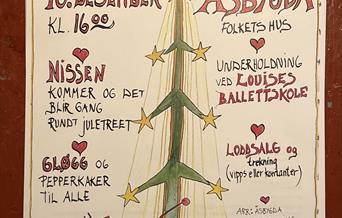 10. DESEMBER
KL. 16⁰⁰
NISSEN
KOMMER OG DET
BLIR GANG
RUNDT JULETREET
GLØGG OG
PEPPERKAKER
TIL ALLE
ÅSBYGDA
FOLKETS HUS
UNDERHOLDNING
VED LOUISES
BALLETTSKOLE
LODDSALG og
trekning
(vipps eller kontanter)
ARR: ÅSBYGDA